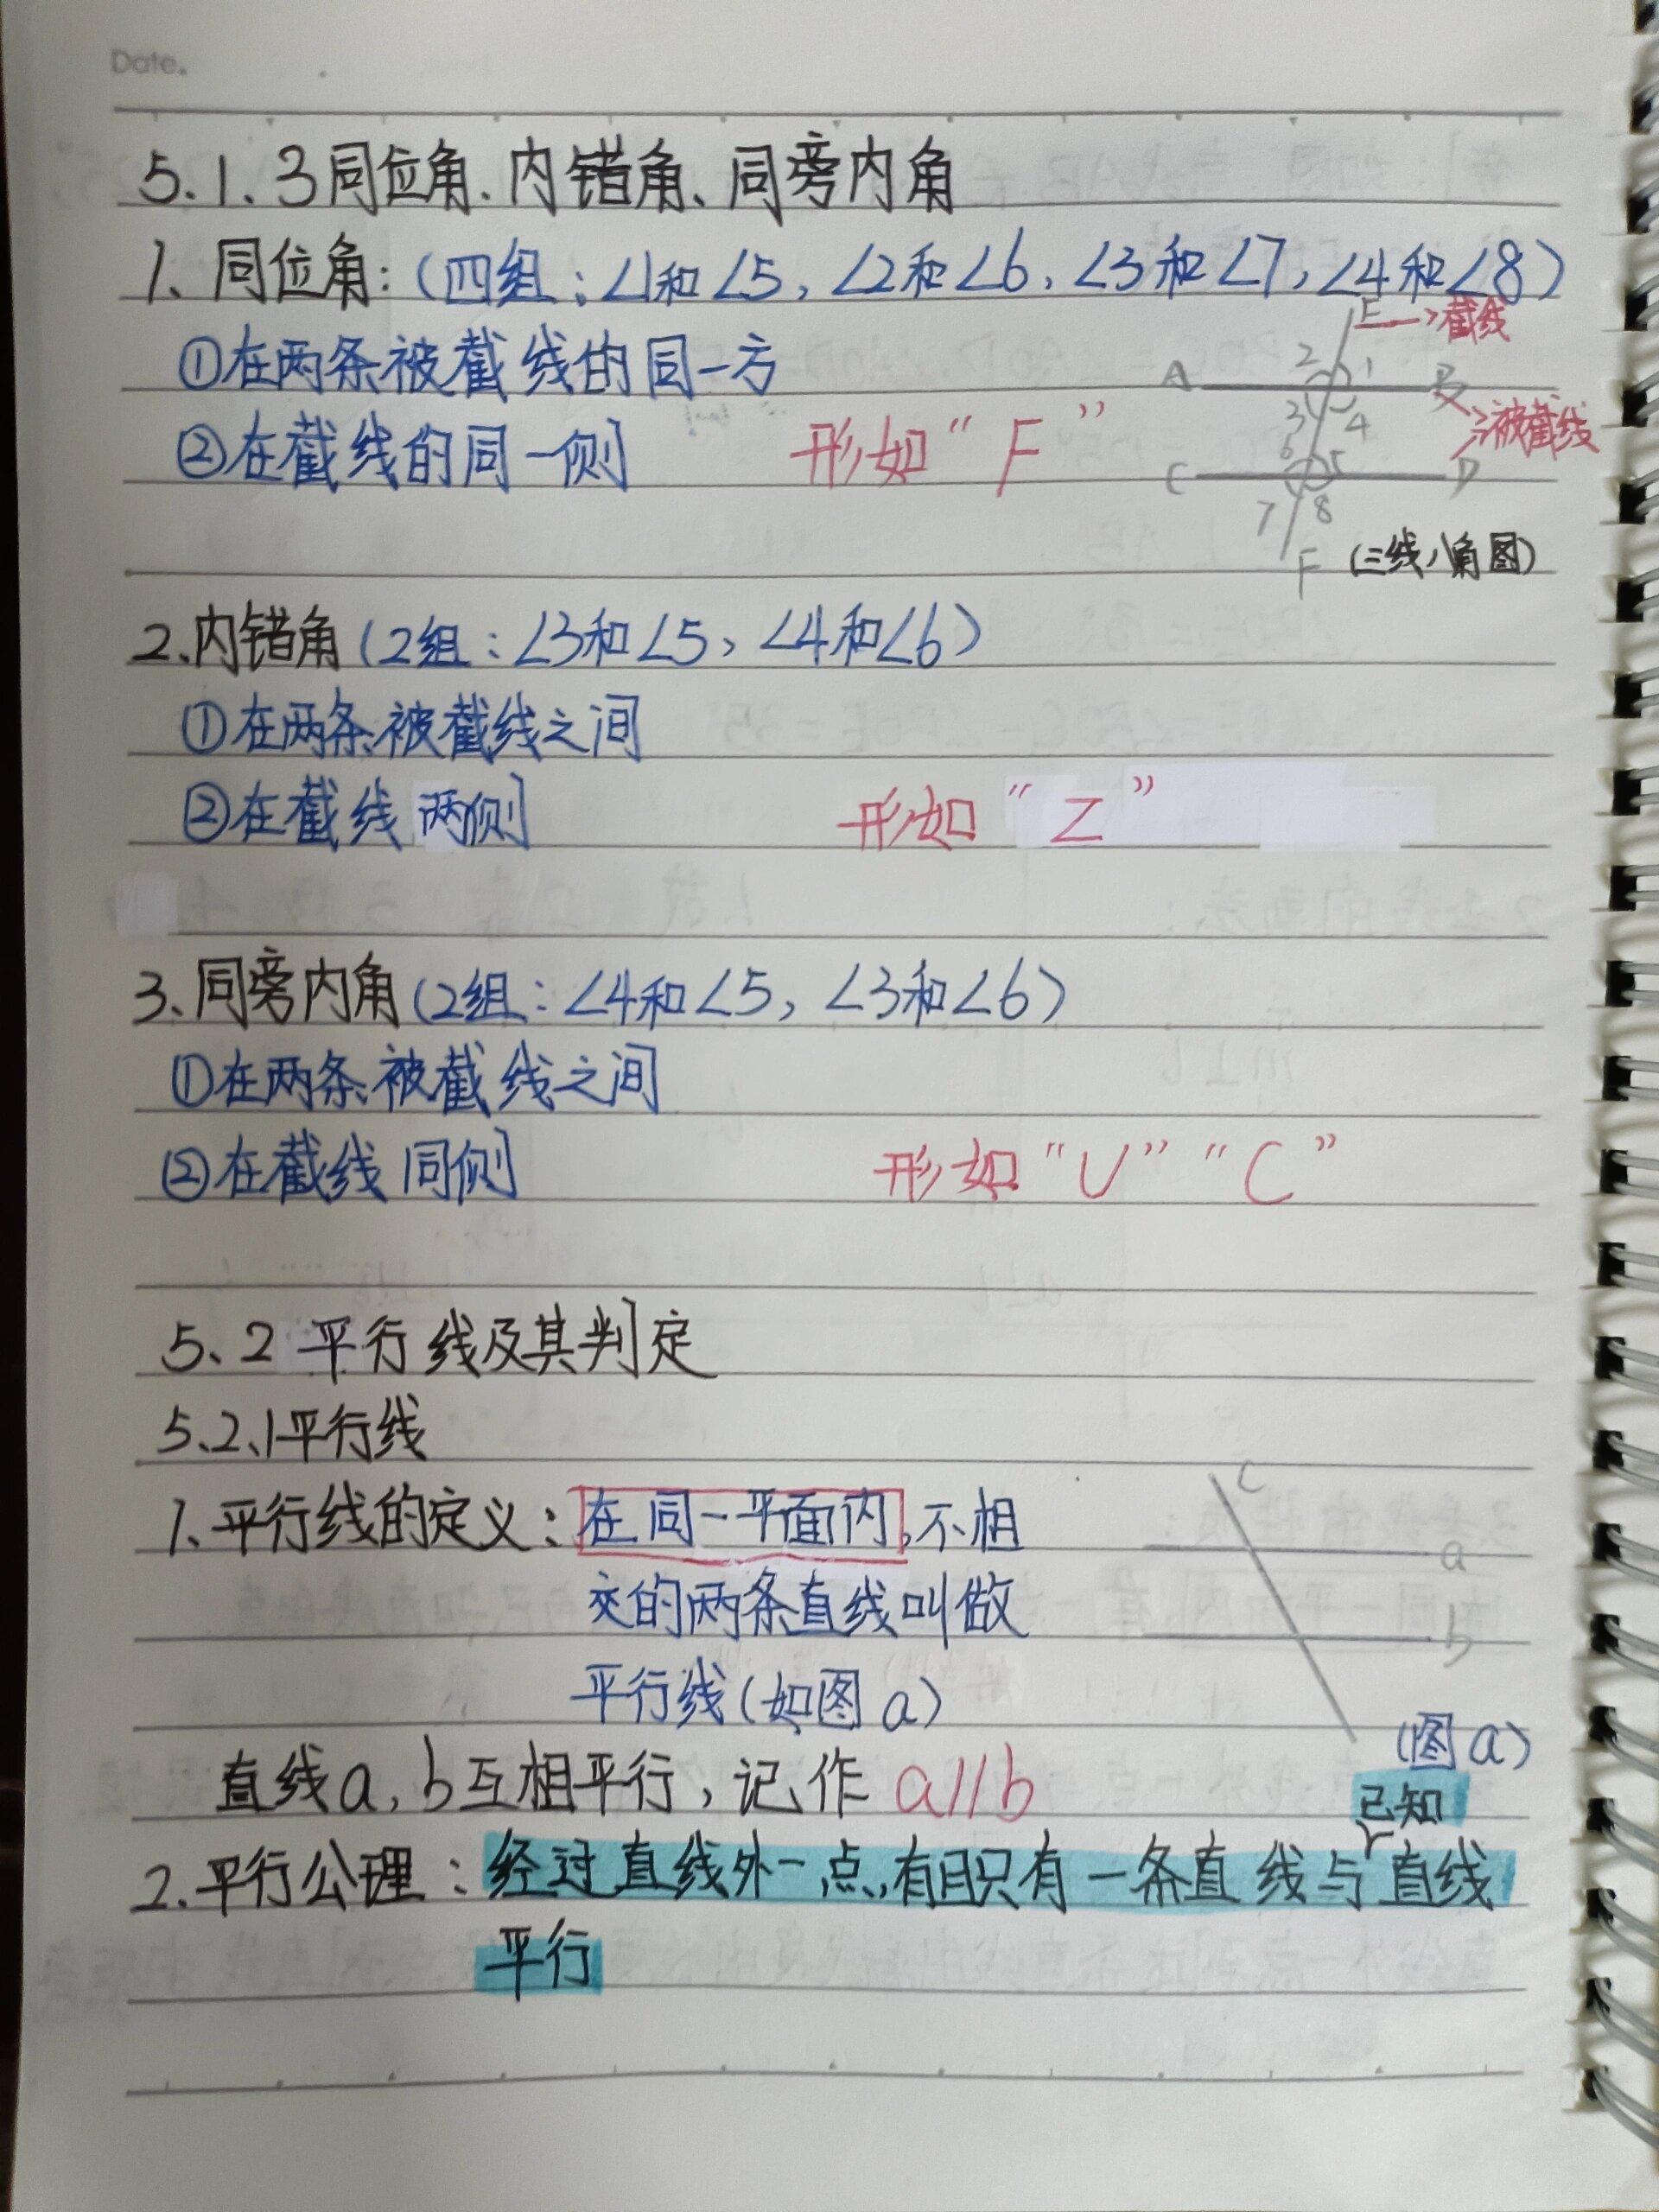 Date.
5.1.3同位角、内错角、同旁内角
1、同位角:(四组:∠1和∠5,∠2和∠6,∠3和∠7,∠4和∠8)
①在两条被截线的同一方
②在截线的同一侧 形如“F”
E →截线
2 1
A B
3 4
→被截线
6 5
C D
7 8
F (三线八角图)
2、内错角(2组:∠3和∠5,∠4和∠6)
①在两条被截线之间
②在截线两侧 形如“Z”
3、同旁内角(2组:∠4和∠5,∠3和∠6)
①在两条被截线之间
②在截线同侧 形如“U”“C”
5、2 平行线及其判定
5、2、1平行线
1、平行线的定义:在同一平面内,不相
交的两条直线叫做
平行线(如图a)
c
a
b
(图a)
直线a,b互相平行,记作 a//b
已知
2.平行公理:经过直线外一点,有且只有一条直线与直线
平行